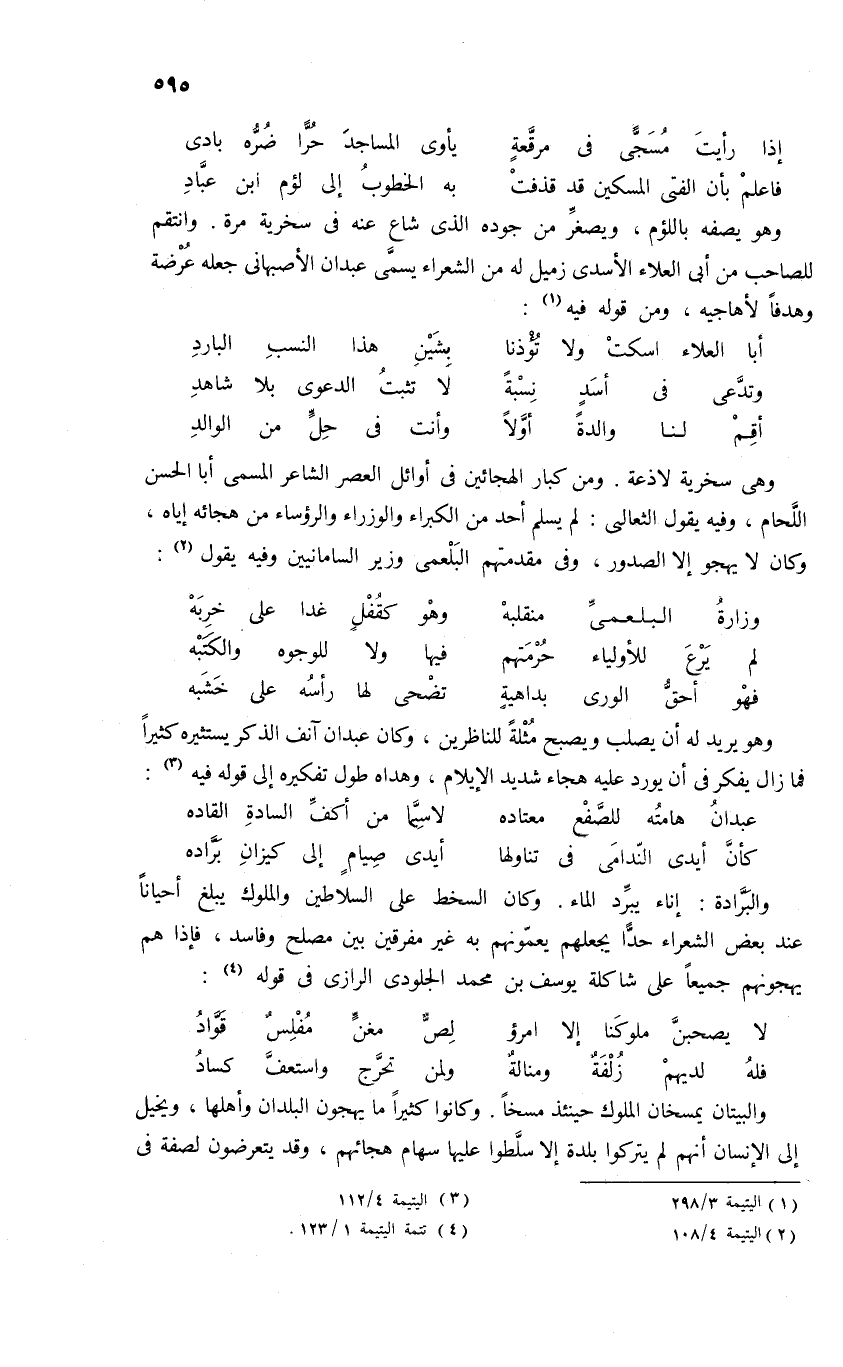 ٥٩٥
إذا رأيتَ مُسَجًّى فى مرقَّعةٍ يأوى المساجدَ حُرًّا ضُرُّه بادى
فاعلمْ بأن الفتى المسكين قد قذفتْ به الخطوبُ إلى لؤم ابن عبَّادِ
وهو يصفه باللؤم ، ويصغِّر من جوده الذى شاع عنه فى سخرية مرة . وانتقم
للصاحب من أبى العلاء الأسدى زميل له من الشعراء يسمَّى عبدان الأصبهانى جعله عُرْضة
وهدفاً لأهاجيه ، ومن قوله فيه (١) :
أبا العلاء اسكتْ ولا تُؤْذنا بِشَيْنِ هذا النسبِ الباردِ
وتدَّعى فى أسَدٍ نِسْبةً لا تثبتُ الدعوى بلا شاهدِ
أقِمْ لنا والدةً أوَّلاً وأنت فى حِلٍّ من الوالدِ
وهى سخرية لاذعة . ومن كبار الهجائين فى أوائل العصر الشاعر المسمى أبا الحسن
اللَّحام ، وفيه يقول الثعالبى : لم يسلم أحد من الكبراء والوزراء والرؤساء من هجائه إياه ،
وكان لا يهجو إلا الصدور ، وفى مقدمتهم البَلْعمى وزير السامانيين وفيه يقول (٢) :
وزارةُ البلعمىِّ منقلبهْ وهْو كقُفْلٍ غدا على خرِبَهْ
لم يَرْعَ للأولياء حُرْمَتهم فيها ولا للوجوه والكَتَبْه
فهْو أحقُّ الورى بداهيةٍ تضْحى لها رأسُه على خَشَبه
وهو يريد له أن يصلب ويصبح مُثْلةً للناظرين ، وكان عبدان آنف الذكر يستثيره كثيراً
فما زال يفكر فى أن يورد عليه هجاء شديد الإيلام ، وهداه طول تفكيره إلى قوله فيه (٣) :
عبدانُ هامتُه للصَّفْع معتاده لاسيَّما من أكفِّ السادةِ القاده
كأنَّ أيدى النّدامَى فى تناولها أيدى صِيامٍ إلى كيزانِ بَرَّاده
والبَرَّادة : إناء يبرِّد الماء . وكان السخط على السلاطين والملوك يبلغ أحياناً
عند بعض الشعراء حدًّا يجعلهم يعمّونهم به غير مفرقين بين مصلح وفاسد ، فإذا هم
يهجونهم جميعاً على شاكلة يوسف بن محمد الجلودى الرازى فى قوله (٤) :
لا يصحبنَّ ملوكَنا إلا امرؤ لِصٌّ مغنٍّ مُفْلِسٌ قَوَّادُ
فلهُ لديهمْ زُلْفَةٌ ومنالةٌ ولمن تحرَّج واستعفَّ كسادُ
والبيتان يمسخان الملوك حينئذ مسخاً . وكانوا كثيراً ما يهجون البلدان وأهلها ، ويخيل
إلى الإنسان أنهم لم يتركوا بلدة إلا سلَّطوا عليها سهام هجائهم ، وقد يتعرضون لصفة فى
(١) اليتيمة ٢٩٨/٣
(٢) اليتيمة ١٠٨/٤
(٣) اليتيمة ١١٢/٤
(٤) تتمة اليتيمة ١٢٣/١ .